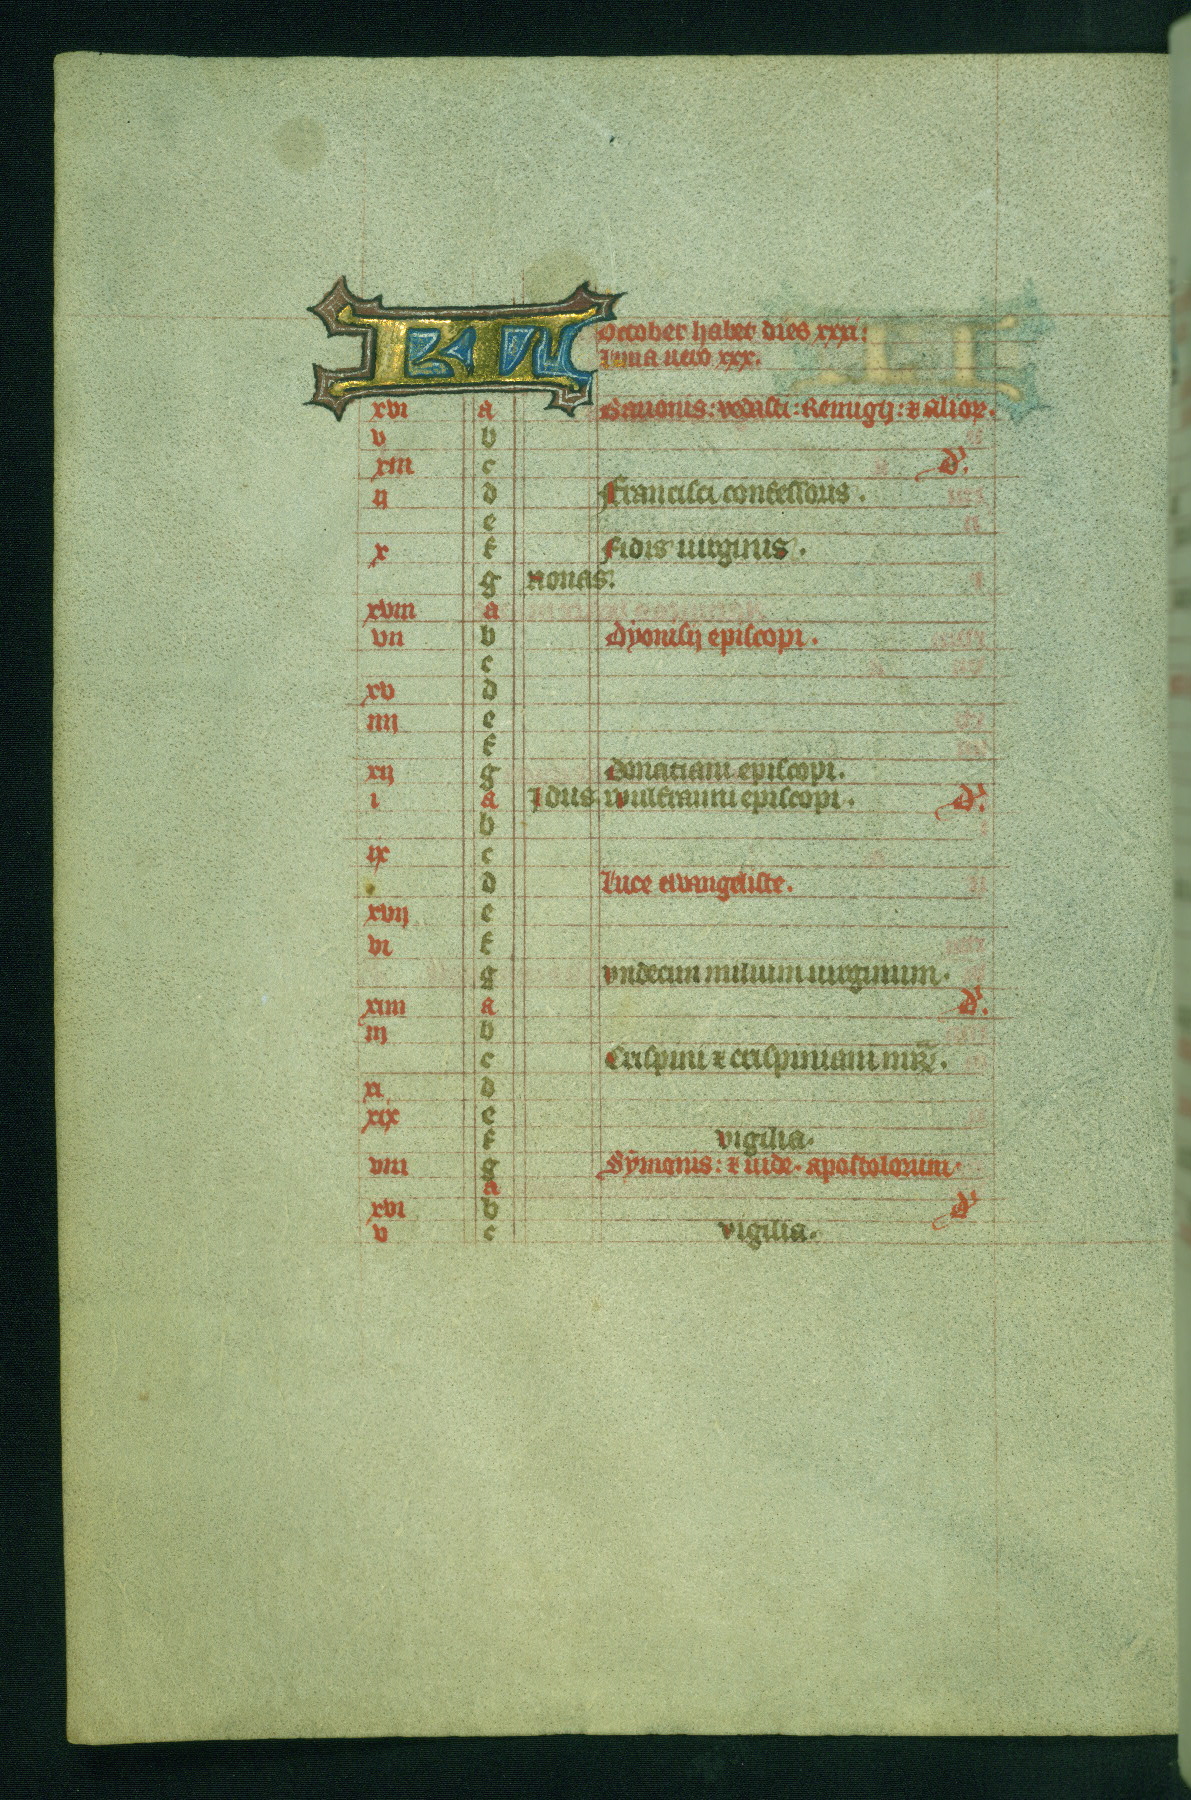 KL October habet dies xxxi:
Luna uero xxx.
xvi a Bauonis: vedasti: Remigij: & alior.
v b
xiii c d'.
ij d Francisci confessoris.
e
x f Fidis uirginis.
g nonas.
xviii a
vii b dyonisij episcopi.
c
xv d
iiij e
f
xij g donatiani episcopi.
i a Idus. vvulfranni episcopi. d'.
b
ix c
d Luce evvangeliste.
xvij e
vi f
g vndecim milium uirginum.
xiiii a d'.
iij b
c Crispini & crispiniani mr̄.
xi d
xix e
f vigilia.
viii g Symonis: & iude. apostolorum.
a
xvi b d'
v c vigilia.